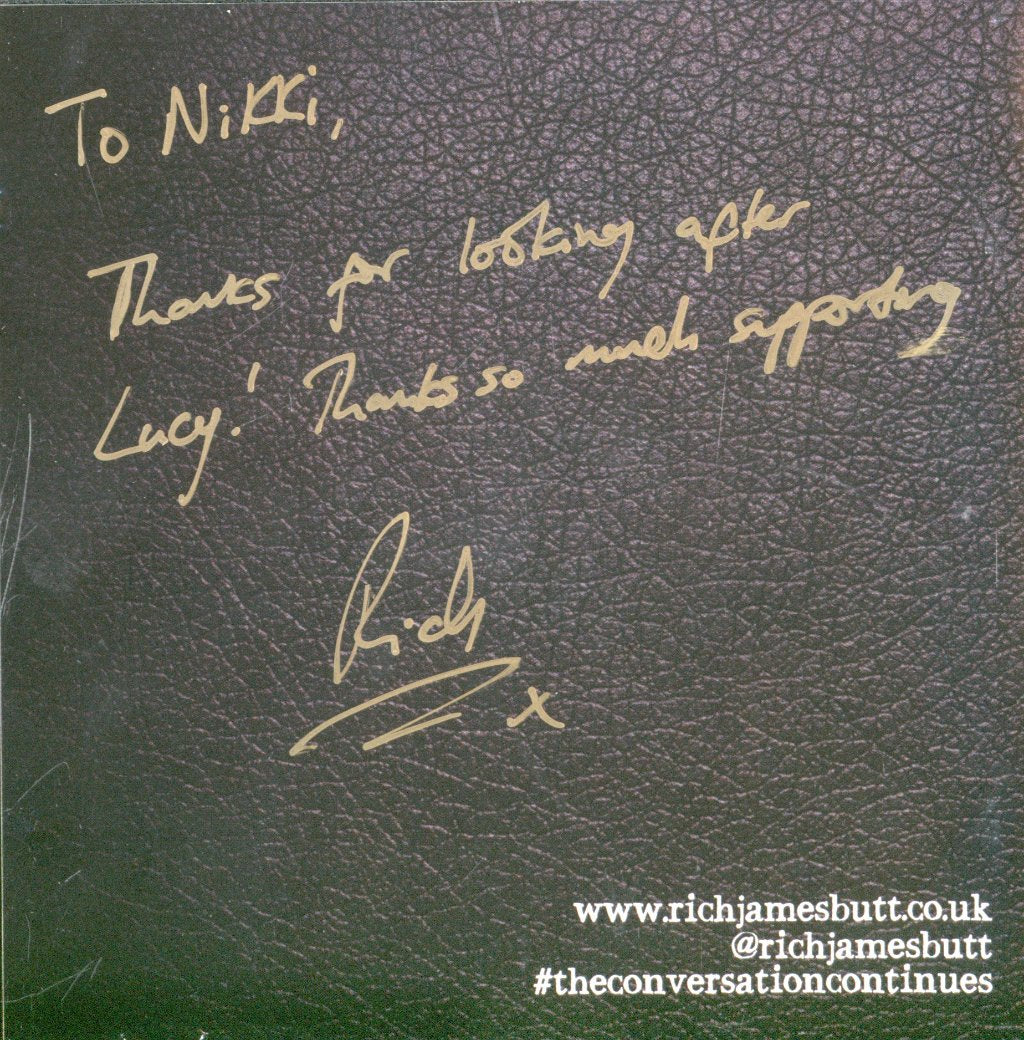 To Nikki,
Thanks for looking after
Lucy! Thanks so much supporting
Rich
x
www.richjamesbutt.co.uk
@richjamesbutt
#theconversationcontinues